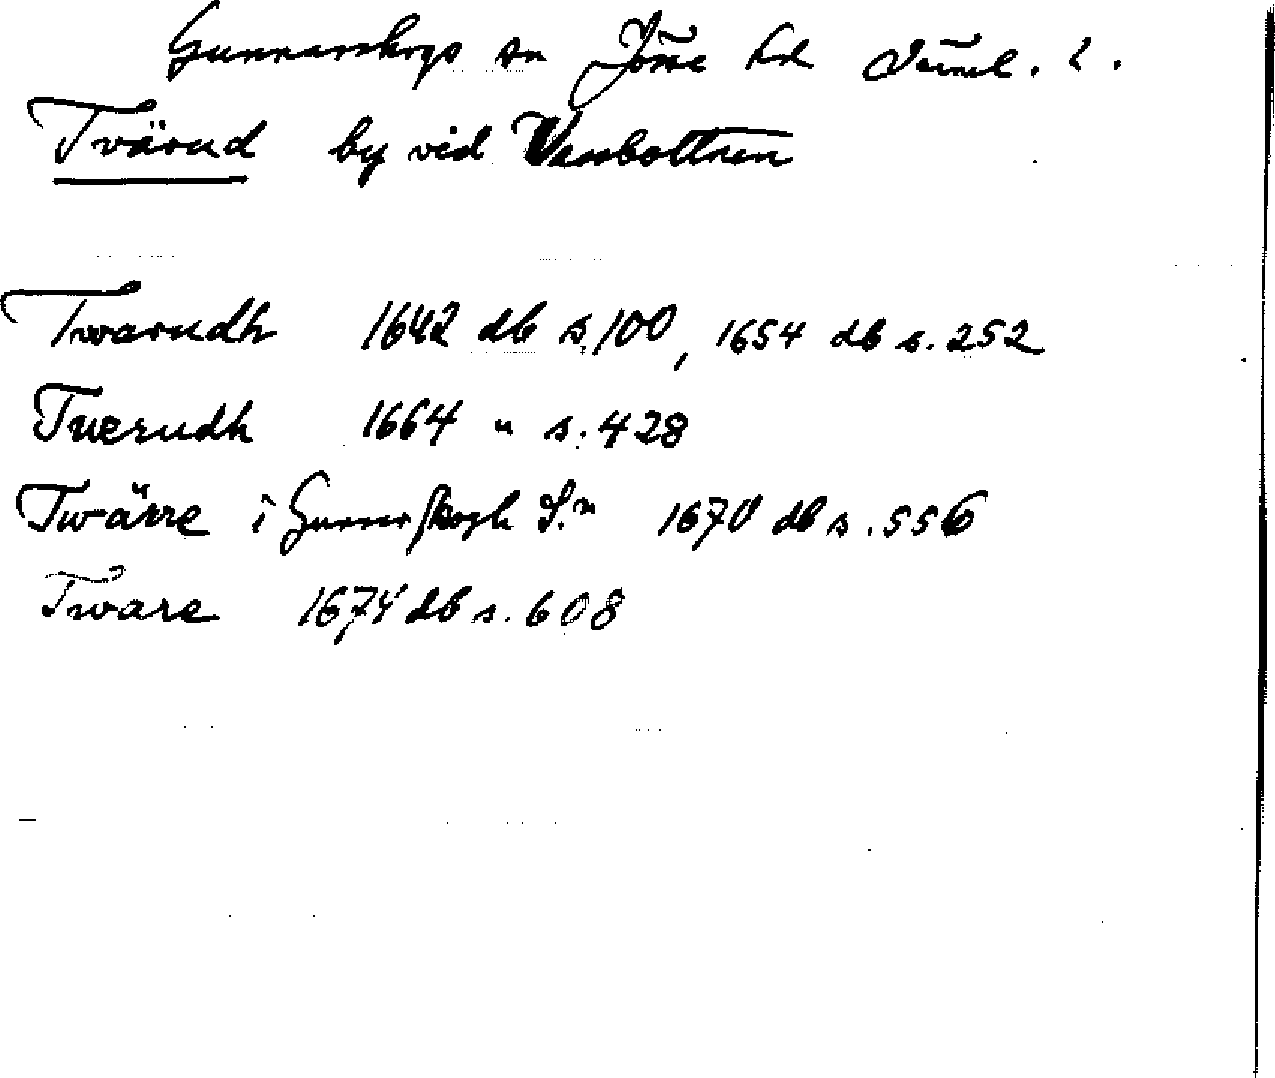 Gunnarskogs sn Jösse hd Värml. l.
Tvärud by vid Vassbottnen
Twarudh 1642 db s. 100, 1654 db s. 252
Twerudh 1664 " s. 428
Twärre i Gunnarskogh S.n 1670 db s. 556
Tware 1674 db s. 608